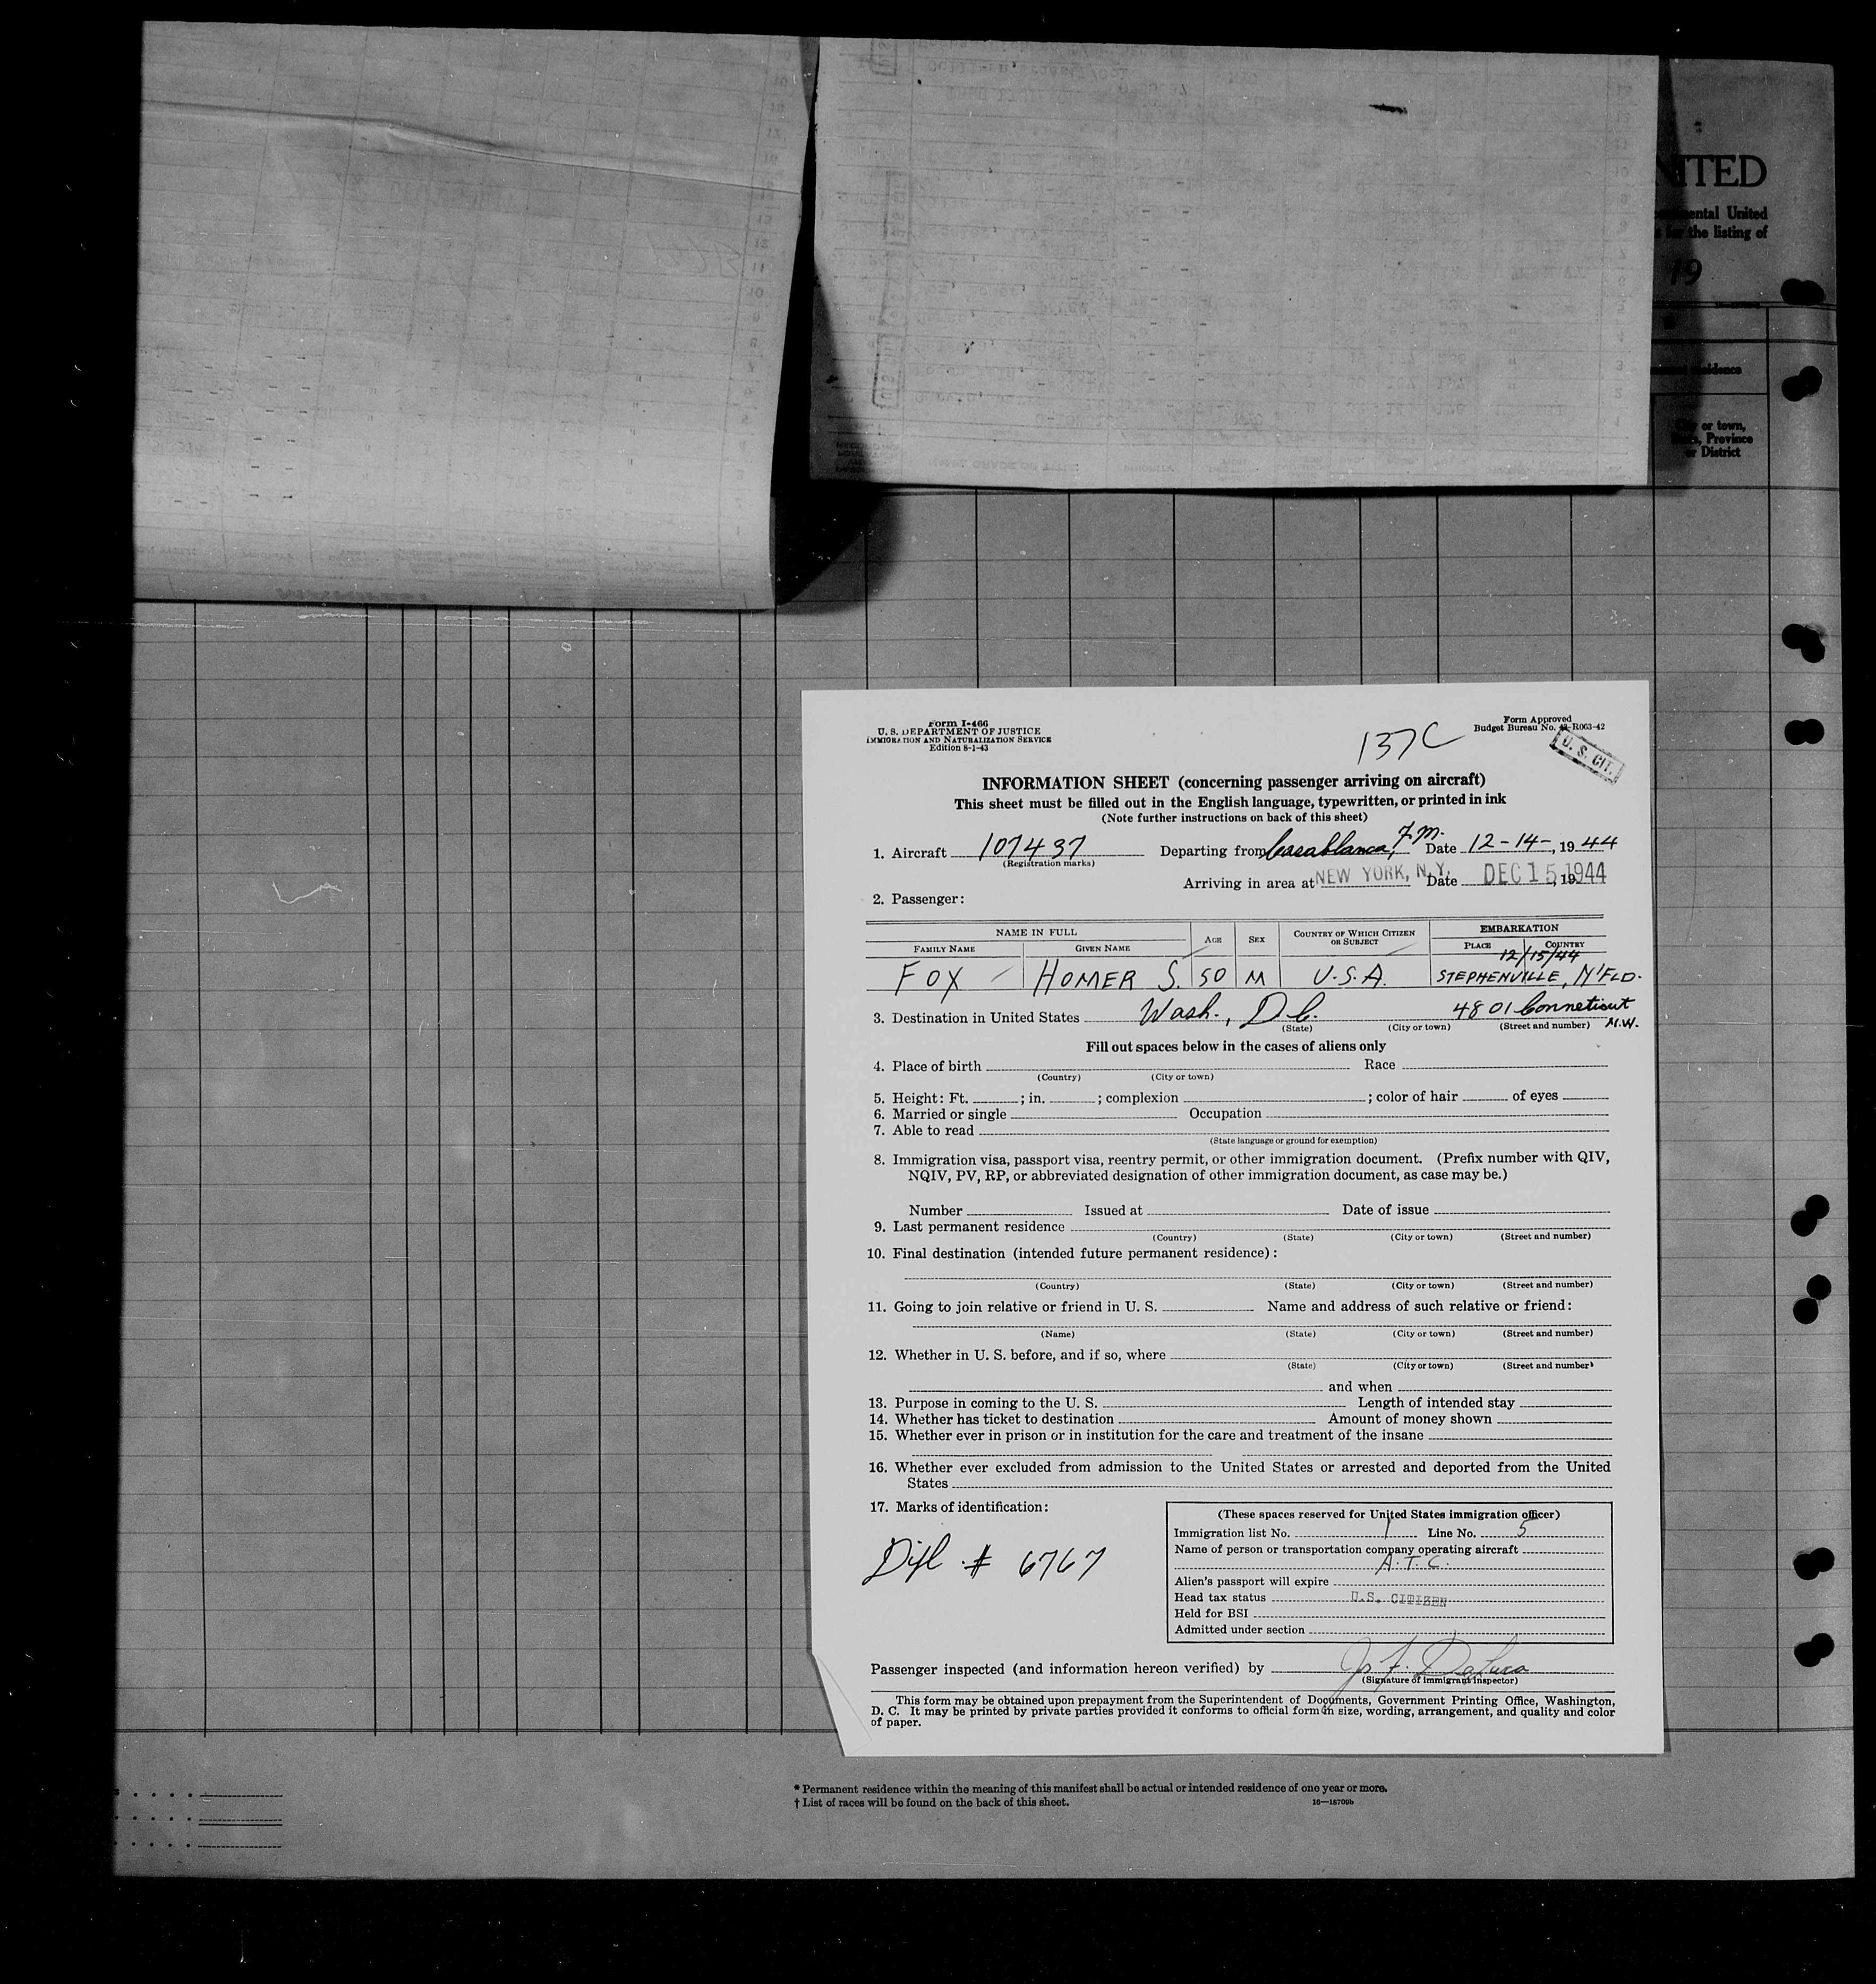 NITED
ental United
for the listing of
19
City or town,
Province
or District
Form I-466
U. S. DEPARTMENT OF JUSTICE
IMMIGRATION AND NATURALIZATION SERVICE
Edition 8-1-43
137C
Form Approved
Budget Bureau No. 43-R063-42
U. S. CIT.
INFORMATION SHEET (concerning passenger arriving on aircraft)
This sheet must be filled out in the English language, typewritten, or printed in ink
(Note further instructions on back of this sheet)
1. Aircraft 107437 Departing from Casablanca, F.M. Date 12-14-, 1944
(Registration marks)
Arriving in area at NEW YORK, N.Y. Date DEC 15 1944, 19
2. Passenger:
NAME IN FULL AGE SEX COUNTRY OF WHICH CITIZEN OR SUBJECT EMBARKATION
FAMILY NAME GIVEN NAME PLACE COUNTRY
12/15/44
FOX HOMER S. 50 M U.S.A. STEPHENVILLE, N'FLD.
3. Destination in United States Wash., D.C. 4801 Conneticut
(State) (City or town) (Street and number) N.W.
Fill out spaces below in the cases of aliens only
4. Place of birth Race
(Country) (City or town)
5. Height: Ft. ; in. ; complexion ; color of hair of eyes
6. Married or single Occupation
7. Able to read
(State language or ground for exemption)
8. Immigration visa, passport visa, reentry permit, or other immigration document. (Prefix number with QIV,
NQIV, PV, RP, or abbreviated designation of other immigration document, as case may be.)
Number Issued at Date of issue
9. Last permanent residence
(Country) (State) (City or town) (Street and number)
10. Final destination (intended future permanent residence):
(Country) (State) (City or town) (Street and number)
11. Going to join relative or friend in U. S. Name and address of such relative or friend:
(Name) (State) (City or town) (Street and number)
12. Whether in U. S. before, and if so, where
(State) (City or town) (Street and number)
and when
13. Purpose in coming to the U. S. Length of intended stay
14. Whether has ticket to destination Amount of money shown
15. Whether ever in prison or in institution for the care and treatment of the insane
16. Whether ever excluded from admission to the United States or arrested and deported from the United
States
17. Marks of identification:
Dipl # 6767
(These spaces reserved for United States immigration officer)
Immigration list No. 1 Line No. 5
Name of person or transportation company operating aircraft
A.T.C.
Alien's passport will expire
Head tax status U.S. CITIZEN
Held for BSI
Admitted under section
Passenger inspected (and information hereon verified) by
(Signature of immigrant inspector)
This form may be obtained upon prepayment from the Superintendent of Documents, Government Printing Office, Washington,
D. C. It may be printed by private parties provided it conforms to official form in size, wording, arrangement, and quality and color
of paper.
* Permanent residence within the meaning of this manifest shall be actual or intended residence of one year or more.
† List of races will be found on the back of this sheet. 16—18709b